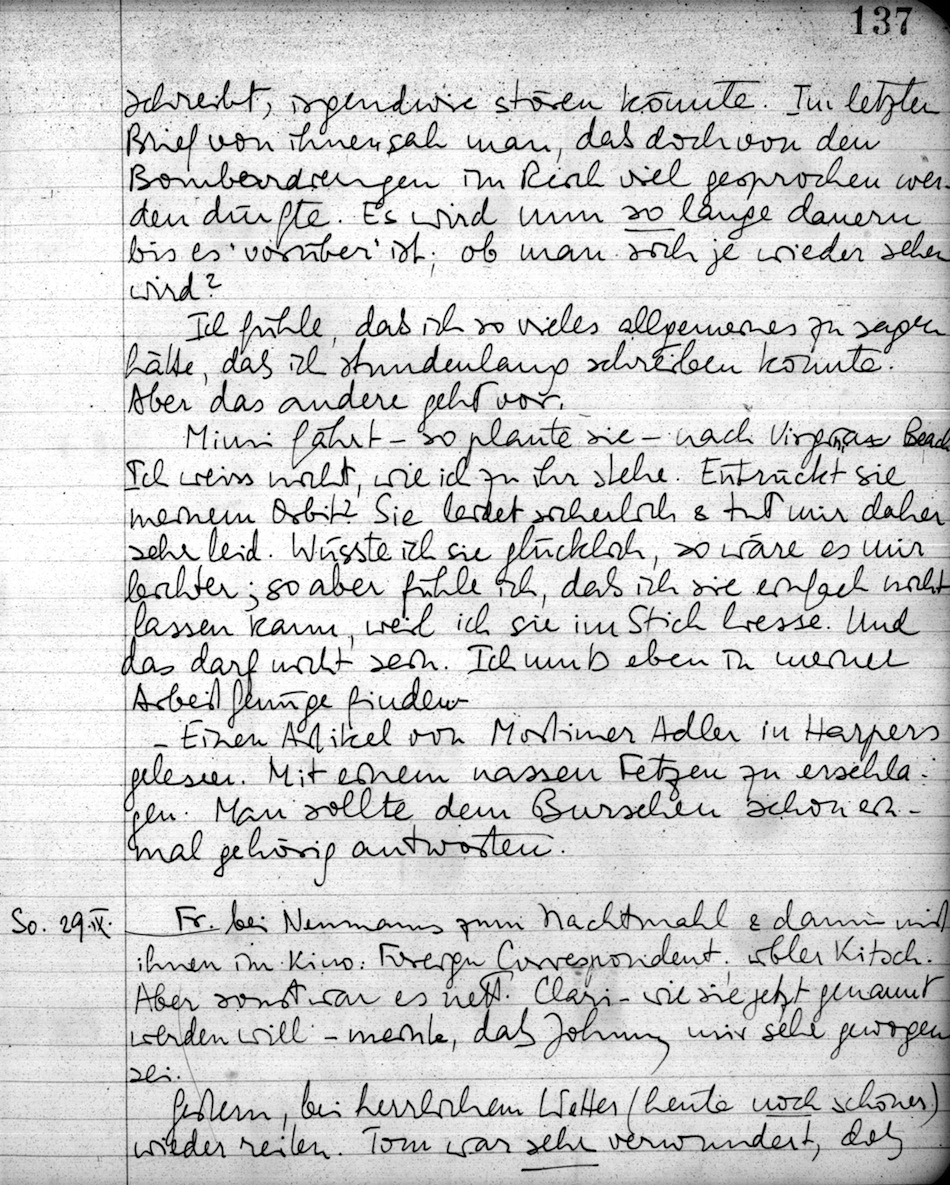 137
schreibt, irgendwie stören könnte. Im letzten
Brief von ihnen sah man, daß doch von den
Bombardierungen im Reich viel gesprochen wer-
den dürfte. Es wird nun so lange dauern
bis es 'vorüber' ist; ob man sich je wieder sehen
wird?
Ich fühle, daß ich so vieles allgemeines zu sagen
hätte, daß ich stundenlang schreiben könnte.
Aber das andere geht vor.
Mimi fährt – so plante sie – nach Virginia Beach
Ich weiss nicht, wie ich zu ihr stehe. Entrückt sie
meinem Orbit? Sie leidet sicherlich & tut mir daher
sehr leid. Wüsste ich sie glücklich, so wäre es mir
leichter; so aber fühle ich, daß ich sie einfach nicht
lassen kann, weil ich sie im Stich liesse. Und
das darf nicht sein. Ich muß eben in meiner
Arbeit Genüge finden
– Einen Artikel von Mortimer Adler in Harpers
gelesen. Mit einem nassen Fetzen zu erschla-
gen. Man sollte dem Burschen schon ein-
mal gehörig antworten.
So. 29.IX. Fr. bei Neumanns zum Nachtmahl & dann mit
ihnen im Kino: Foreign Correspondent. übler Kitsch.
Aber sonst war es nett. – wie sie jetzt genannt
werden will – meinte, daß Johnny mir sehr gewogen
sei.
Gestern, bei herrlichem Wetter (heute noch schöner)
wieder reiten. Tom war sehr verwundert, daß